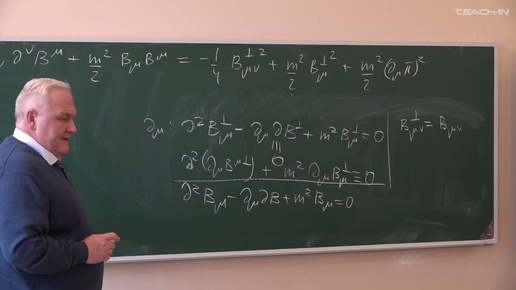 TEACH-IN
∂^ν B^μ + m²/2 B_μ B^μ = -1/4 B^⊥_μν ² + m²/2 B^⊥_μ ² + m²/2 (∂_μ π̃)²
∂_μ : ∂² B^⊥_μ - ∂_μ ∂B^⊥ + m² B^⊥_μ = 0
B^⊥_μν = B_μν
0
∂² (∂_μ B^μ⊥) + m² ∂_μ B^⊥_μ ≡ 0
∂² B_μ - ∂_μ ∂B + m² B_μ = 0